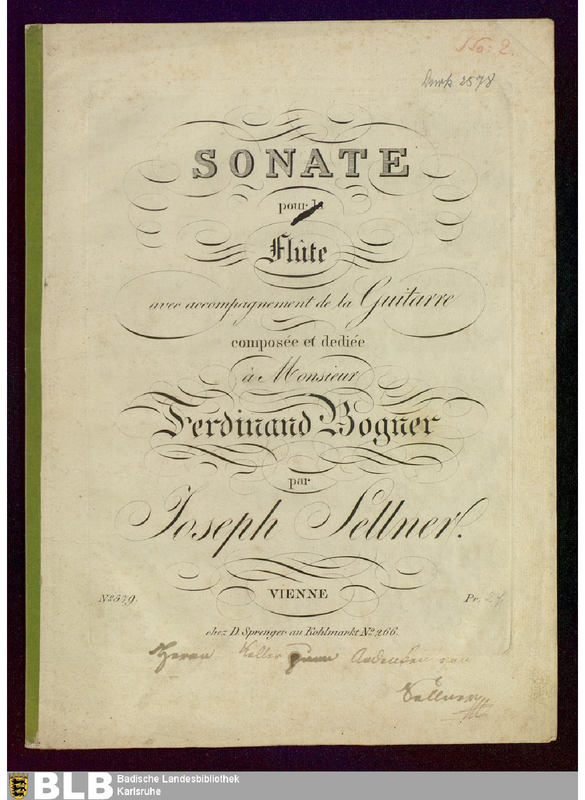 No: 2.
Druck 2578
SONATE
pour la
Flûte
avec accompagnement de la Guitarre
composée et dediée
à Monsieur
Ferdinand Bogner
par
Joseph Sellner.
VIENNE
No. 579. Pr.
chez D. Sprenger au Kohlmarkt No. 266.
Herrn Keller zum Andenken von
Sellner
BLB Badische Landesbibliothek
Karlsruhe